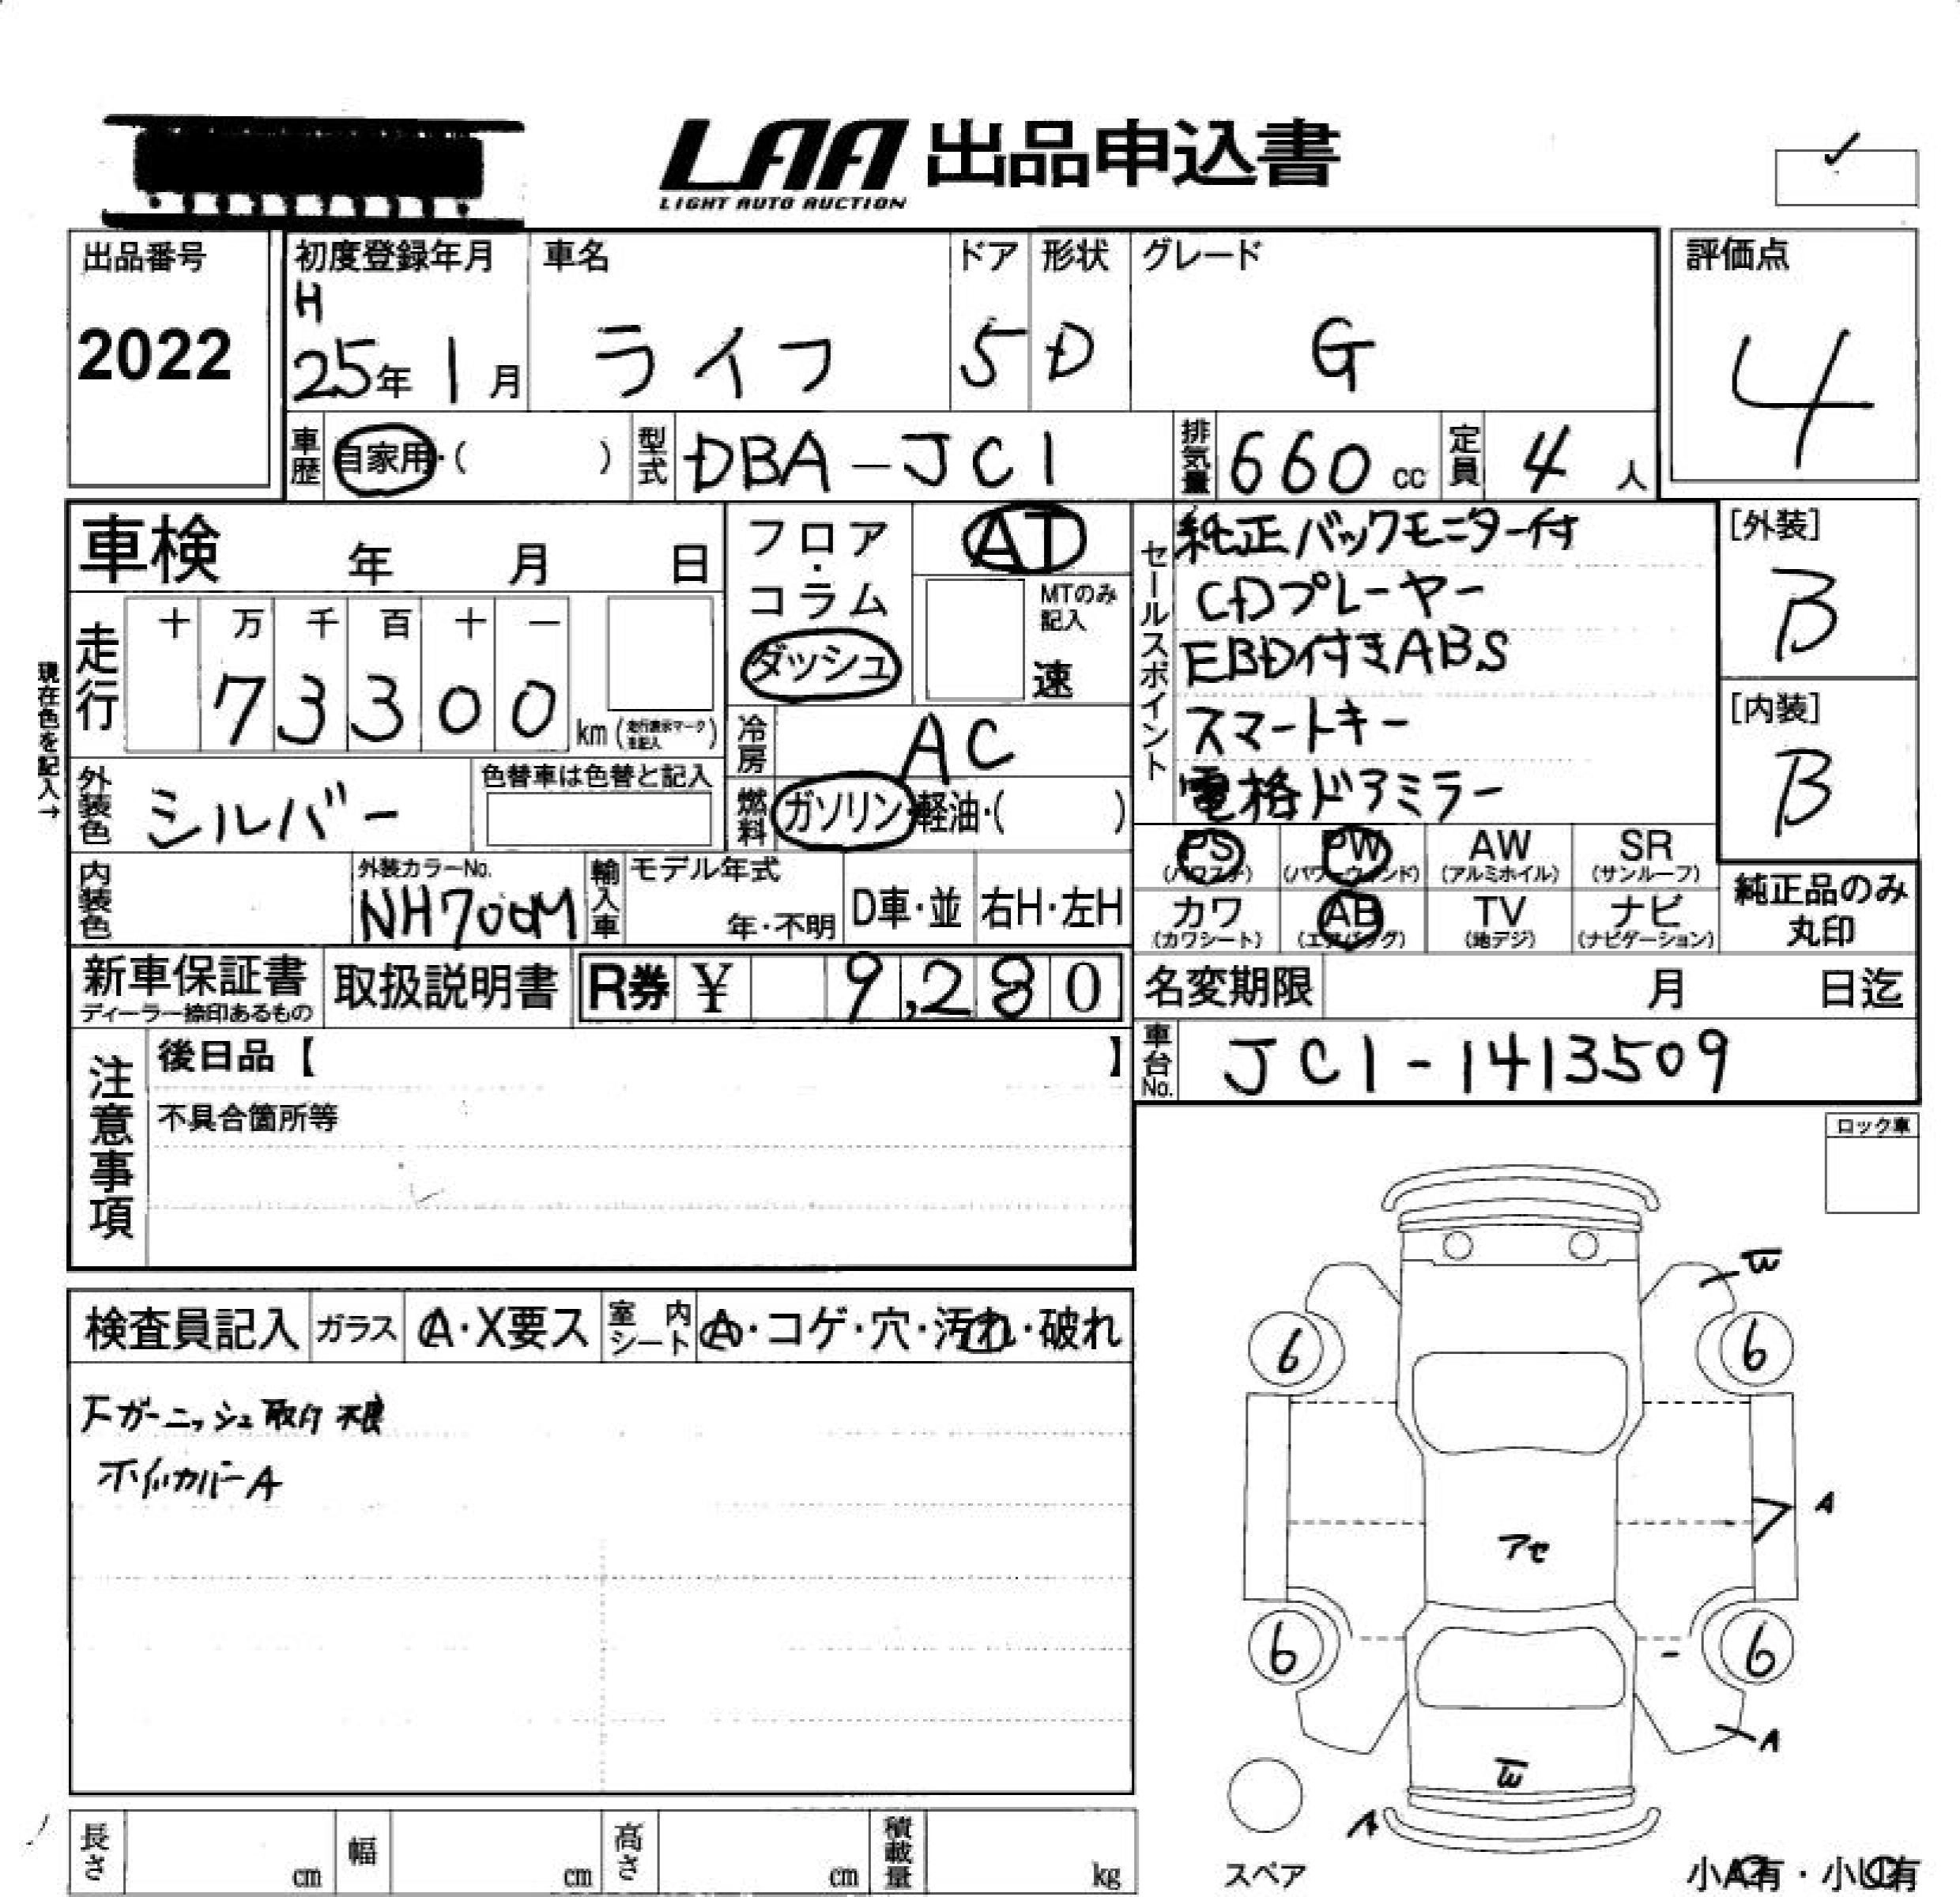 LAA 出品申込書
LIGHT AUTO AUCTION
出品番号 2022
初度登録年月 H 25年 1月
車名 ライフ
ドア 5
形状 D
グレード G
評価点 4
車歴 自家用・( )
型式 DBA-JC1
排気量 660 cc
定員 4 人
車検 年 月 日
フロア・コラム ダッシュ
AT
MTのみ記入 速
走行 十 万 千 百 十 一
73300 km
現在色を記入→
冷房 AC
外装色 シルバー
色替車は色替と記入
燃料 ガソリン・軽油・( )
内装色
外装カラーNo. NH700M
輸入車 モデル年式 年・不明 D車・並 右H・左H
セールスポイント
純正バックモニター付
CDプレーヤー
EBD付きABS
スマートキー
電格ドアミラー
[外装] B
[内装] B
PS (パワステ) PW (パワーウィンド) AW (アルミホイル) SR (サンルーフ)
カワ (カワシート) AB (エアバッグ) TV (地デジ) ナビ (ナビゲーション)
純正品のみ丸印
新車保証書 ディーラー捺印あるもの
取扱説明書
R券 ¥ 9,280
名変期限 月 日迄
車台No. JC1-1413509
注意事項
後日品【 】
不具合箇所等
ロック車
検査員記入 ガラス A・X要ス 室内シート A・コゲ・穴・汚れ・破れ
Fガーニッシュ取付不良
ホイルカバーA
W
6 6
A
アセ
6 6
A
W
A
スペア
小A有・小U有
長さ cm 幅 cm 高さ cm 積載量 kg